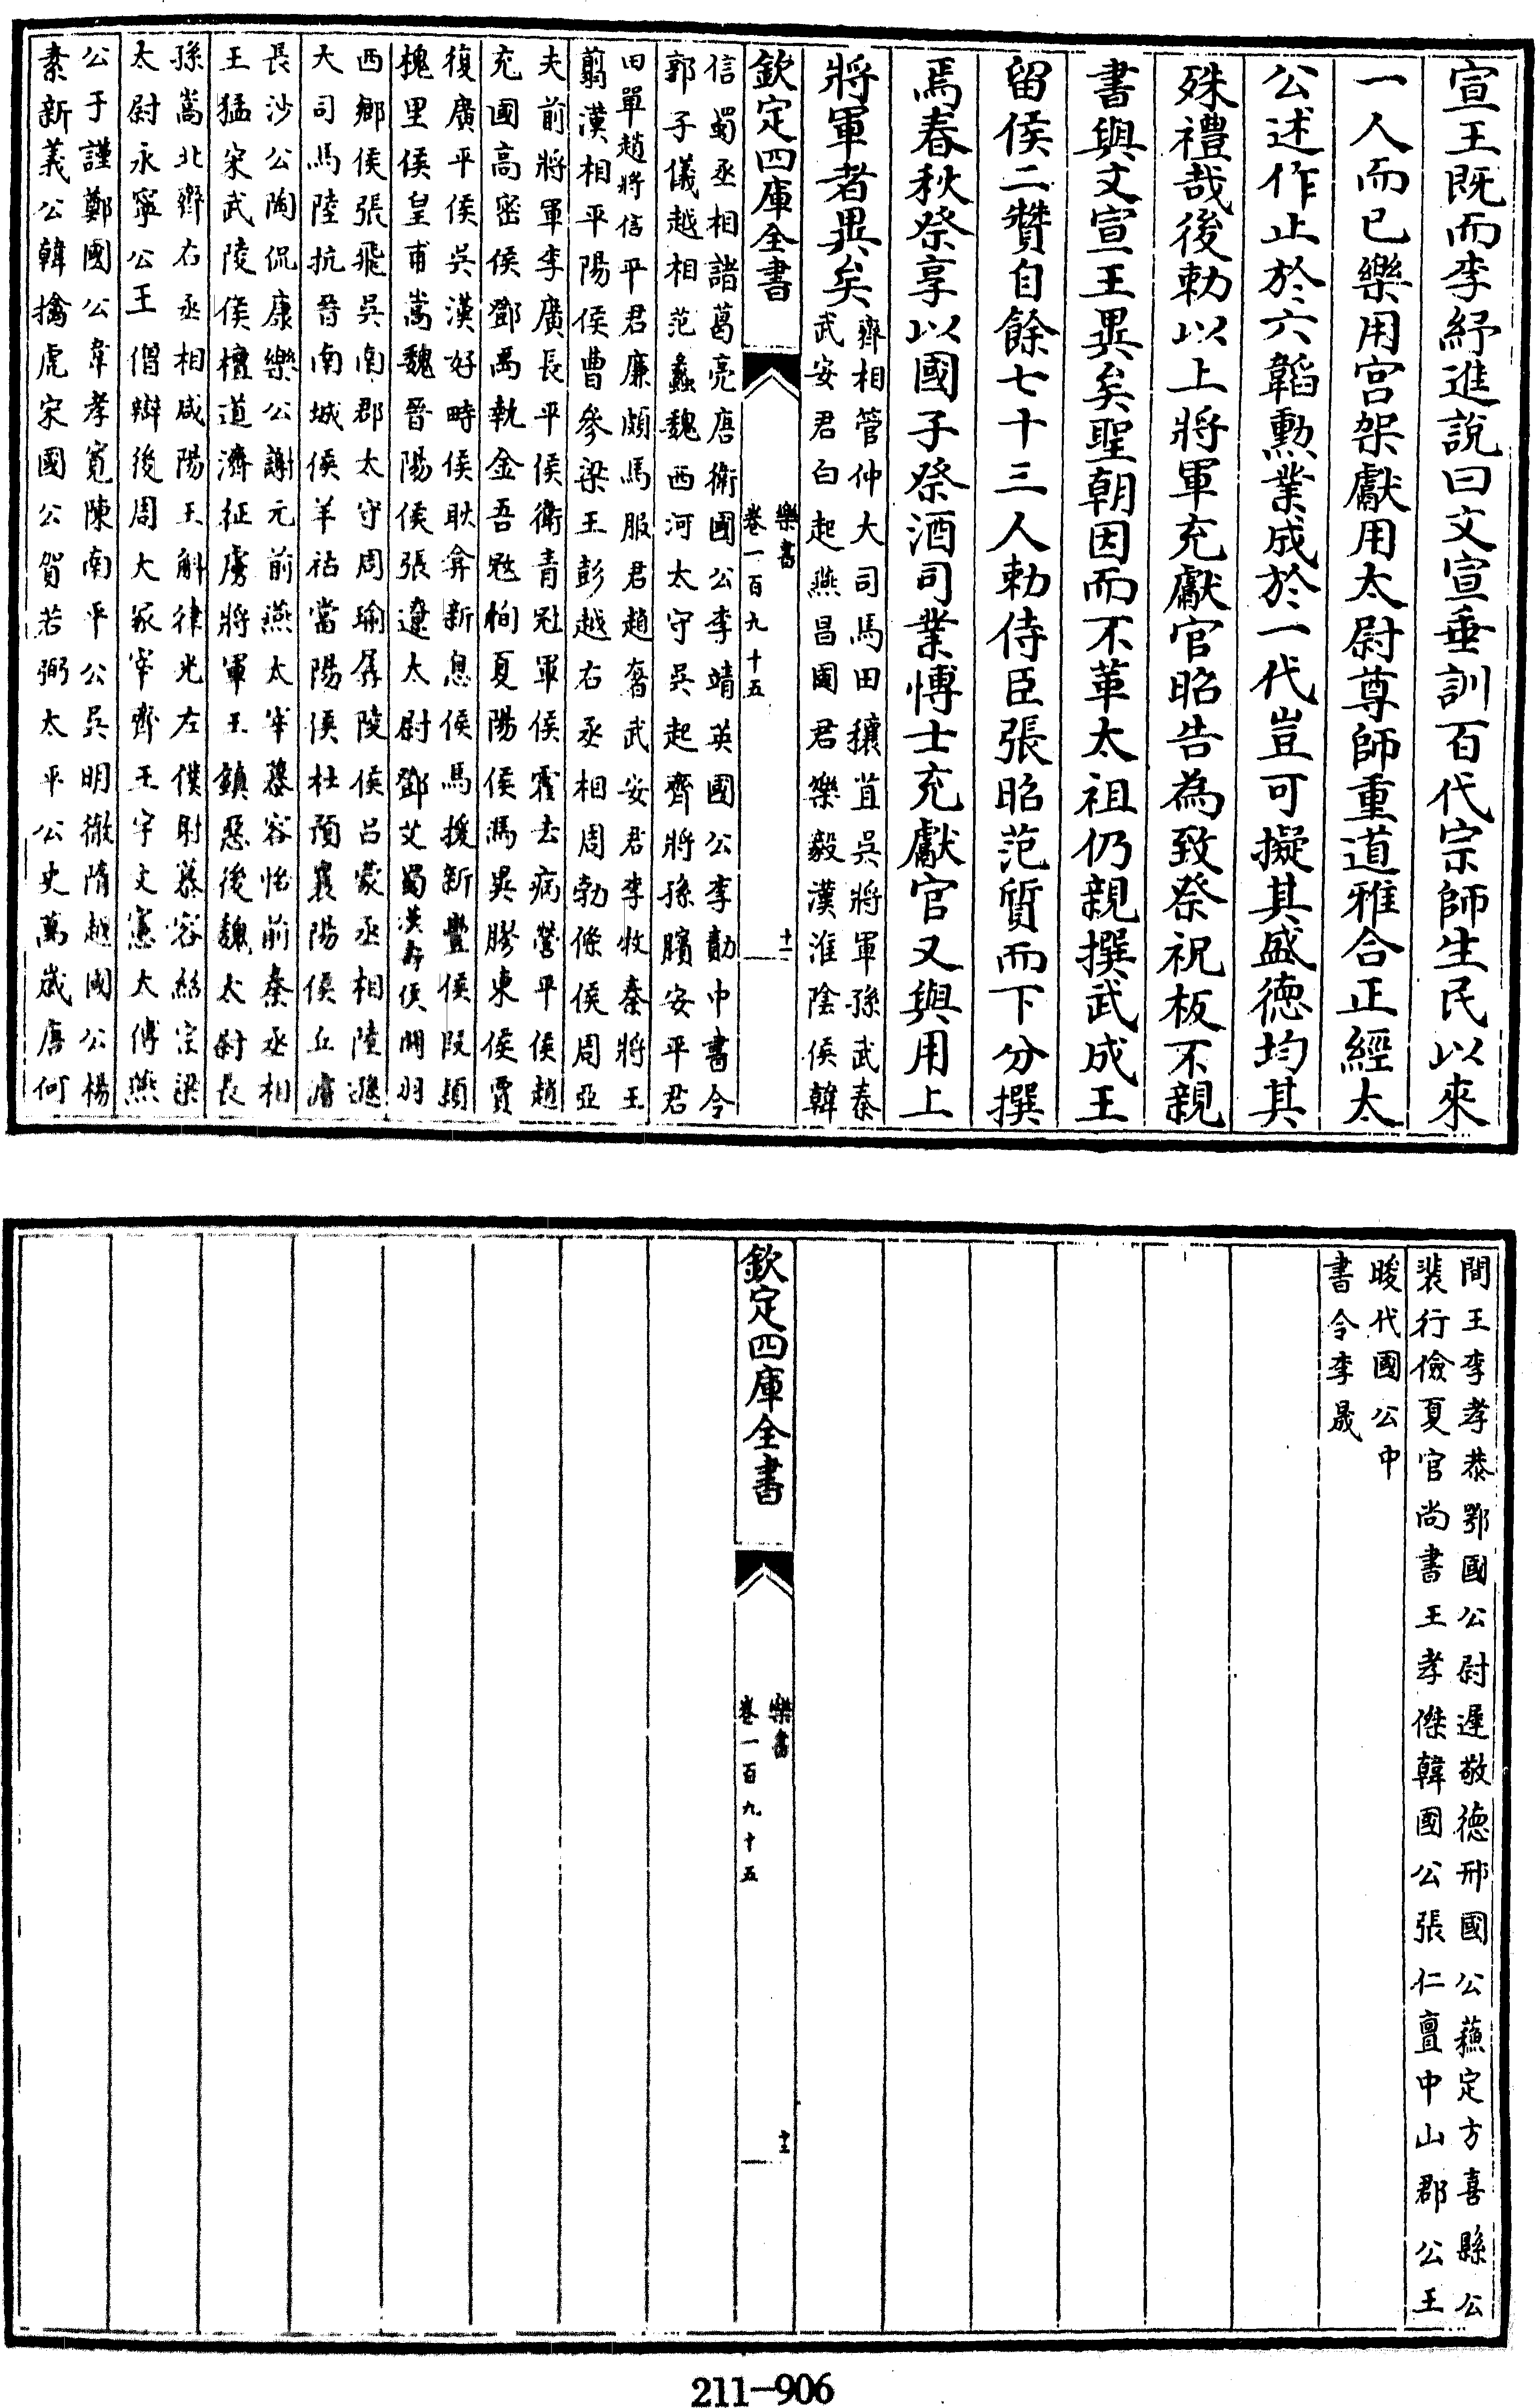 宣王既而李紓進說曰文宣垂訓百代宗師生民以來
一人而已樂用宫架獻用太尉尊師重道雅合正經太
公述作止於六韜勲業成於一代豈可擬其盛徳均其
殊禮哉後勅以上將軍充獻官昭告為致祭祝板不親
書與文宣王異矣聖朝因而不革太祖仍親撰武成王
留侯二贊自餘七十三人勅侍臣張昭范質而下分撰
焉春秋祭享以國子祭酒司業博士充獻官又與用上
將軍者異矣
齊相管仲大司馬田穰苴吳將軍孫武秦
武安君白起燕昌國君樂毅漢淮陰侯韓
欽定四庫全書
樂書
卷一百九十五
十二
信蜀丞相諸葛亮唐衛國公李靖英國公李勣中書令
郭子儀越相范蠡魏西河太守吳起齊將孫臏安平君
田單趙將信平君廉頗馬服君趙奢武安君李牧秦將王
翦漢相平陽侯曹參梁王彭越右丞相周勃條侯周亞
夫前將軍李廣長平侯衛青冠軍侯霍去病營平侯趙
充國高密侯鄧禹執金吾冦恂夏陽侯馮異膠東侯賈
復廣平侯吳漢好畤侯耿弇新息侯馬援新豐侯段熲
槐里侯皇甫嵩魏晉陽侯張遼太尉鄧艾蜀漢壽侯關羽
西鄉侯張飛吳南郡太守周瑜孱陵侯吕蒙丞相陸遜
大司馬陸抗晉南城侯羊祜當陽侯杜預襄陽侯王濬
長沙公陶侃康樂公謝元前燕太宰慕容恪前秦丞相
王猛宋武陵侯檀道濟征虜將軍王鎮惡後魏太尉長
孫嵩北齊右丞相咸陽王斛律光左僕射慕容紹宗梁
太尉永寧公王僧辯後周大冢宰齊王宇文憲太傅燕
公于謹鄭國公韋孝寛陳南平公吳明徹隋越國公楊
素新義公韓擒虎宋國公賀若弼太平公史萬嵗唐河
間王李孝恭鄂國公尉遲敬徳邢國公蘇定方喜縣公
裴行儉夏官尚書王孝傑韓國公張仁亶中山郡公王
晙代國公中
書令李晟
欽定四庫全書
樂書
卷一百九十五
十三
211-906